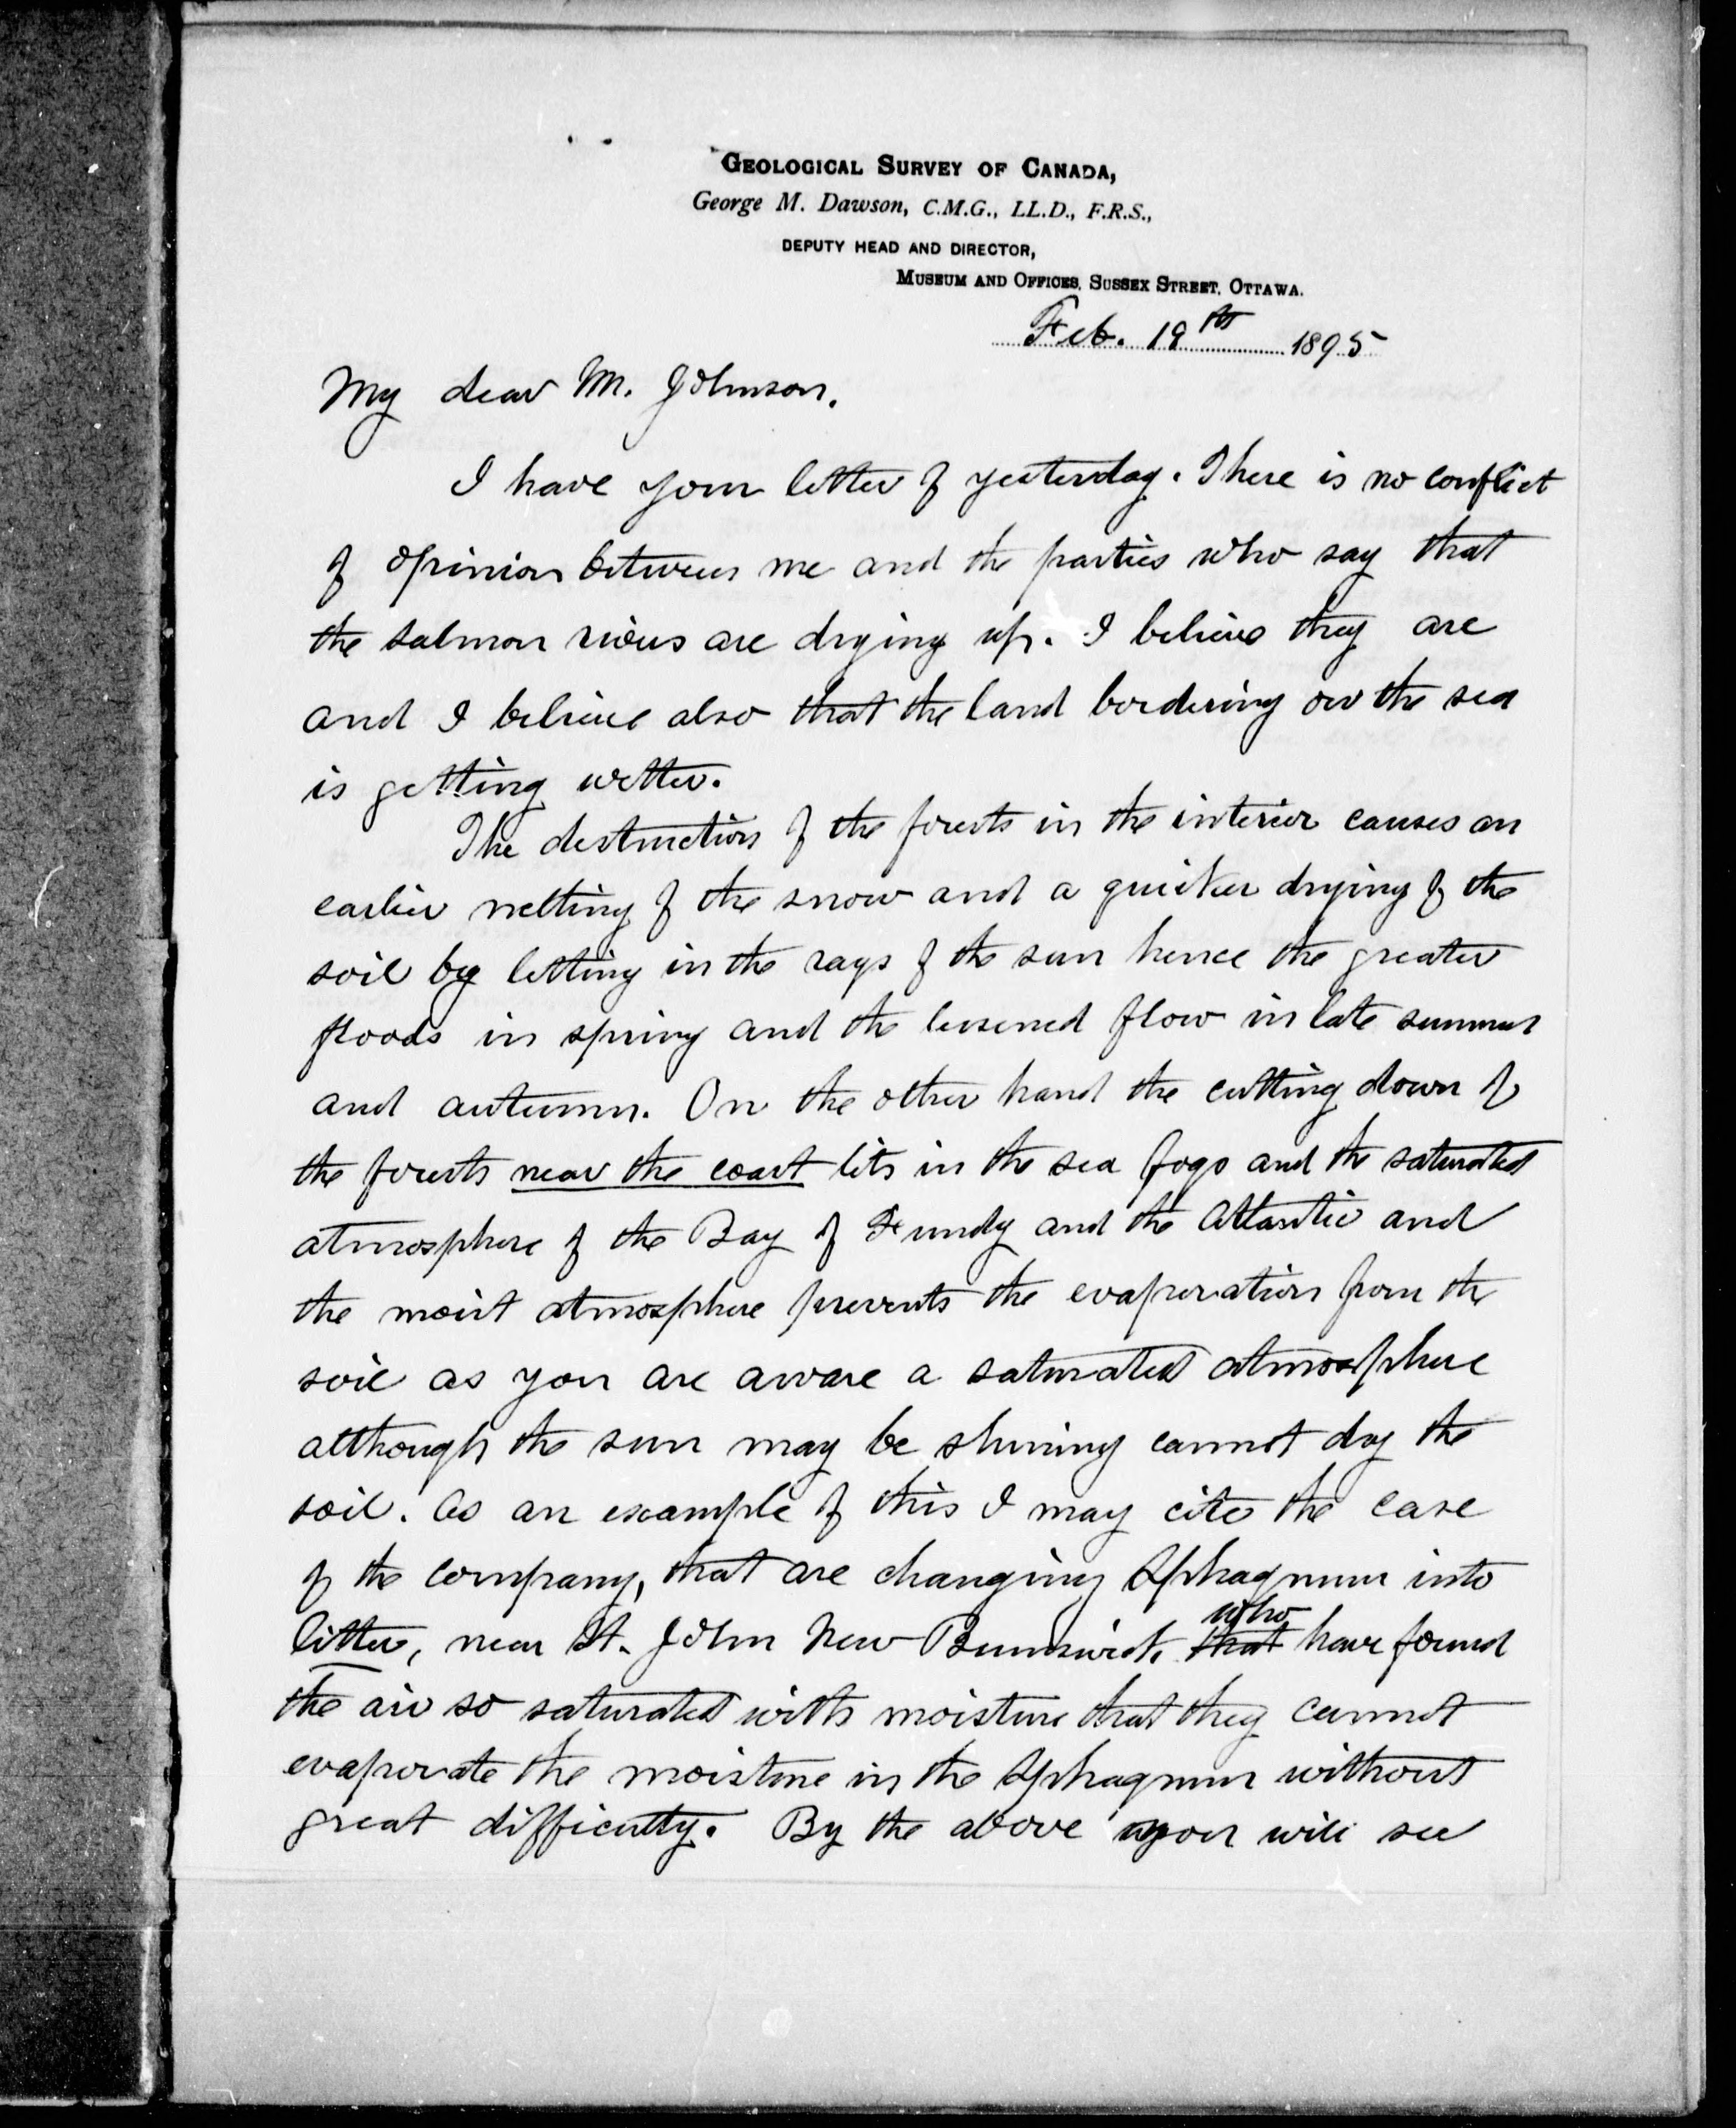 GEOLOGICAL SURVEY OF CANADA,
George M. Dawson, C.M.G., LL.D., F.R.S.,
DEPUTY HEAD AND DIRECTOR,
MUSEUM AND OFFICES, SUSSEX STREET, OTTAWA.
Feb. 19th 1895
My dear M. Johnson.
I have your letter of yesterday. There is no conflict
of opinion between me and the parties who say that
the salmon rivers are drying up. I believe they are
and I believe also that the land bordering on the sea
is getting wetter.
The destruction of the forests in the interior causes an
earlier melting of the snow and a quicker drying of the
soil by letting in the rays of the sun hence the greater
floods in spring and the lessened flow in late summer
and autumn. On the other hand the cutting down of
the forests near the coast lets in the sea fogs and the saturated
atmosphere of the Bay of Fundy and the Atlantic and
the moist atmosphere prevents the evaporation from the
soil as you are aware a saturated atmosphere
although the sun may be shining cannot dry the
soil. As an example of this I may cite the case
of the company, that are changing Sphagnum into
litter, near St. John New Brunswick. that who have found
the air so saturated with moisture that they cannot
evaporate the moisture in the Sphagnum without
great difficulty. By the above you will see